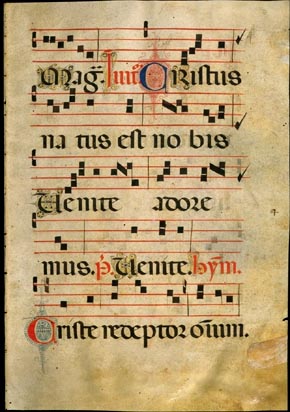 Mag. Inuit. Cristus
na tus est no bis
Uenite adore
mus. p. Uenite. hym.
Criste redeptor oium.